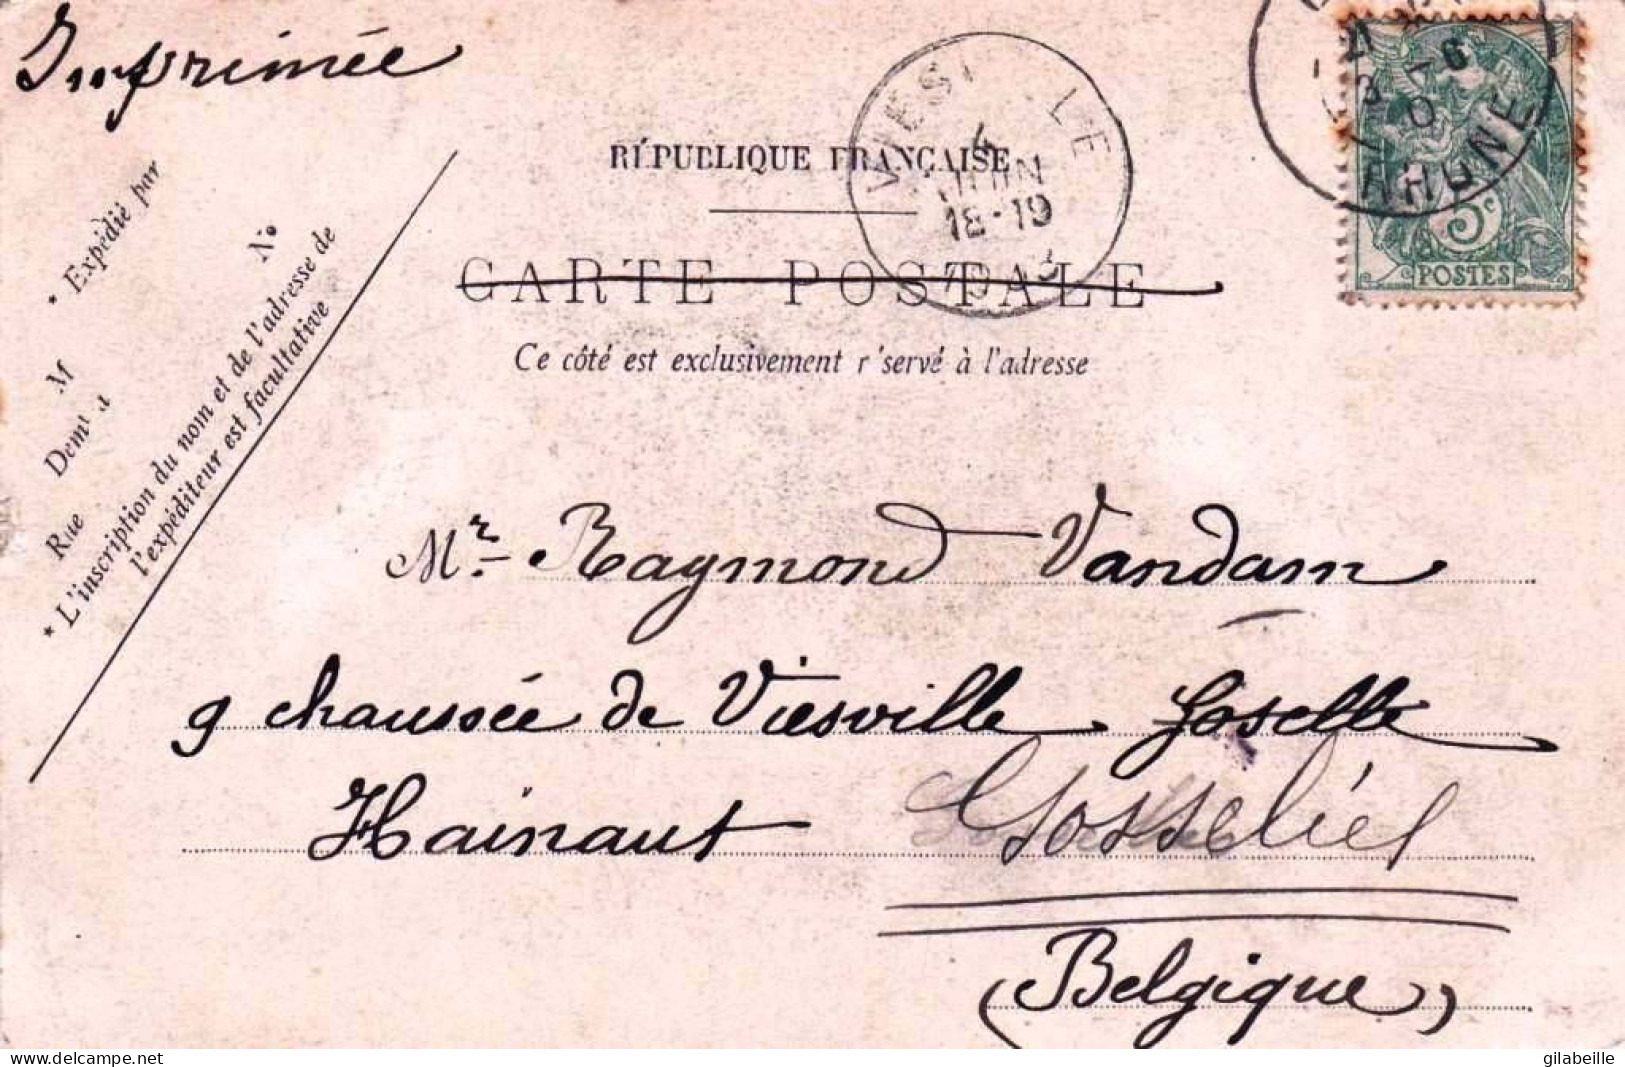 Imprimée
RÉPUBLIQUE FRANÇAISE
CARTE POSTALE
Ce côté est exclusivement r'servé à l'adresse
* Expédié par
M
Demt à
Rue
No
* L'inscription du nom et de l'adresse de
l'expéditeur est facultative
4
JUIN
18-19
RHONE
5c
POSTES
Mr Raymond Vandam
9 chaussée de Viesville Gosellé
Hainaut
Gosseliés
(Belgique)
gilabeille